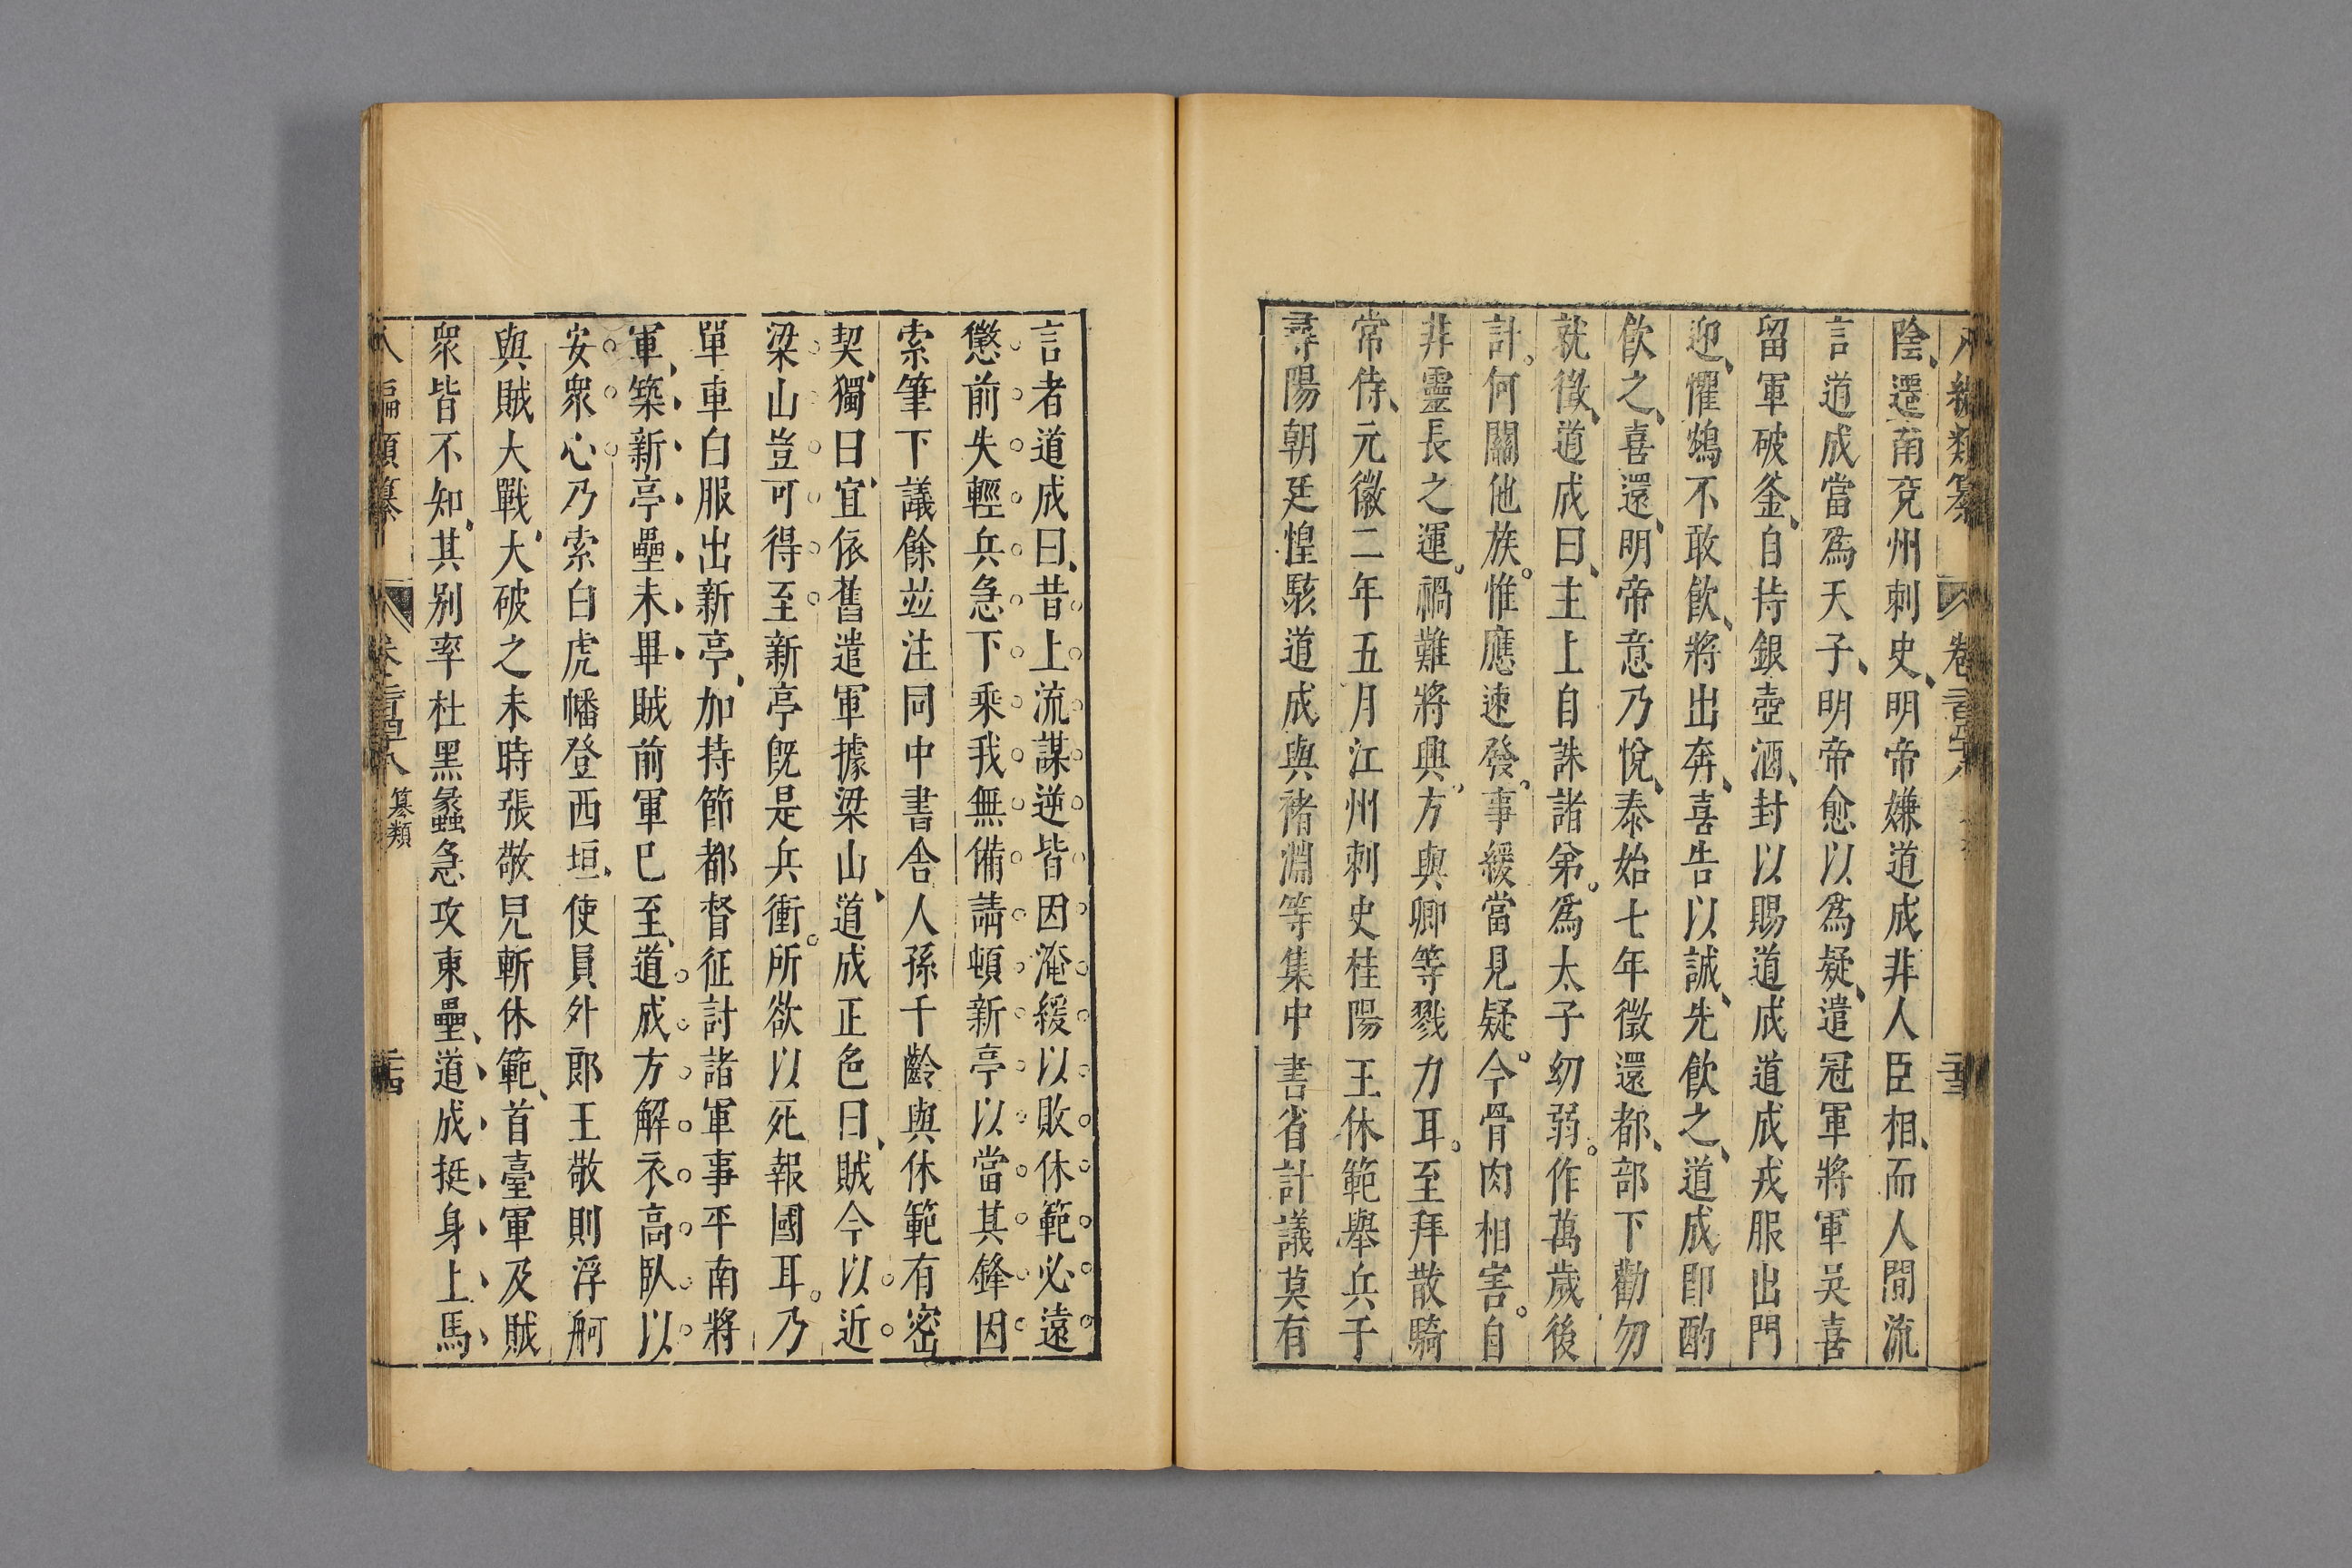 陰、遷南兗州刺史、明帝嫌道成非人臣相、而人間流
言道成當爲天子、明帝愈以爲疑、遣冠軍將軍吳喜
留軍破釜、自持銀壺酒、封以賜道成道成戎服出門
迎、懼鴆不敢飮、將出奔、喜告以誠、先飮之、道成卽酌
飮之、喜還、明帝意乃悅、泰始七年徵還都、部下勸勿
就徵、道成曰、主上自誅諸弟。爲太子幼弱。作萬歲後
計。何關他族。惟應速發。事緩當見疑。今骨肉相害。自
非靈長之運。禍難將興。方與卿等戮力耳。至拜散騎
常侍、元徽二年五月江州刺史桂陽王休範舉兵于
尋陽朝廷惶駭道成與褚淵等集中書省計議莫有
言者道成曰、昔上流謀逆皆因淹緩以敗休範必遠
懲前失輕兵急下乘我無備請頓新亭以當其鋒因
索筆下議餘並注同中書舍人孫千齡與休範有密
契、獨曰、宜依舊遣軍據梁山、道成正色曰、賊今以近
梁山豈可得至新亭旣是兵衝。所欲以死報國耳。乃
單車白服出新亭、加持節都督征討諸軍事平南將
軍、築新亭壘未畢賊前軍已至、道成方解衣高臥以
安衆心乃索白虎幡登西垣、使員外郎王敬則浮舸
與賊大戰、大破之未時張敬兒斬休範、首臺軍及賊
衆皆不知。其別率杜黑蠡急攻東壘、道成挺身上馬
八編類纂
卷二百四十八
纂類
二十四